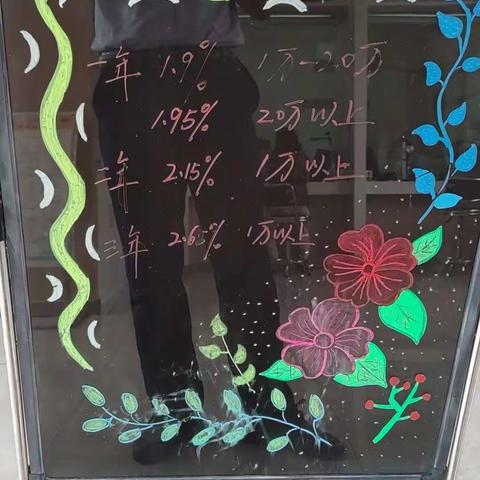 一年 1.9% 1万-20万
1.95% 20万以上
二年 2.15% 1万以上
三年 2.65% 1万以上